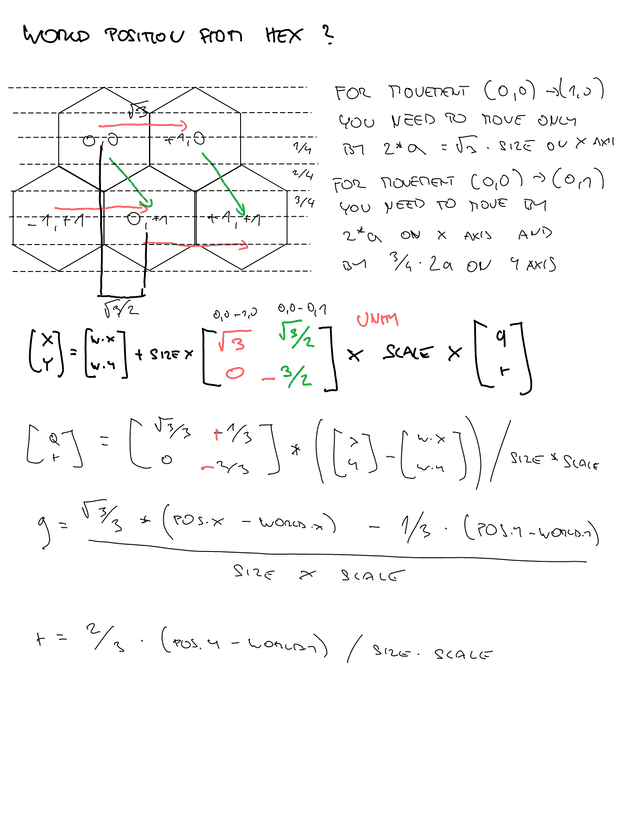 WORLD POSITION FROM HEX ?
√3
0,0
+1,0
1/4
2/4
3/4
-1,+1
0,+1
+1,+1
√3/2
FOR MOVEMENT (0,0)→(1,0)
YOU NEED TO MOVE ONLY
BY 2*a = √3 · SIZE ON X AXI
FOR MOVEMENT (0,0)→(0,1)
YOU NEED TO MOVE BY
2*a ON X AXIS AND
BY 3/4 · 2a ON Y AXIS
0,0-1,0 0,0-0,1 UNITY
[X Y] = [W.X W.Y] + SIZE × [√3 √3/2 0 -3/2] × SCALE × [q r]
[Q r] = [√3/3 +1/3 0 -2/3] * ([X Y] - [W.X W.Y]) / SIZE * SCALE
q = √3/3 * (POS.X - WORLD.X) - 1/3 · (POS.Y - WORLD.Y)
SIZE × SCALE
r = 2/3 · (POS.Y - WORLD.Y) / SIZE · SCALE